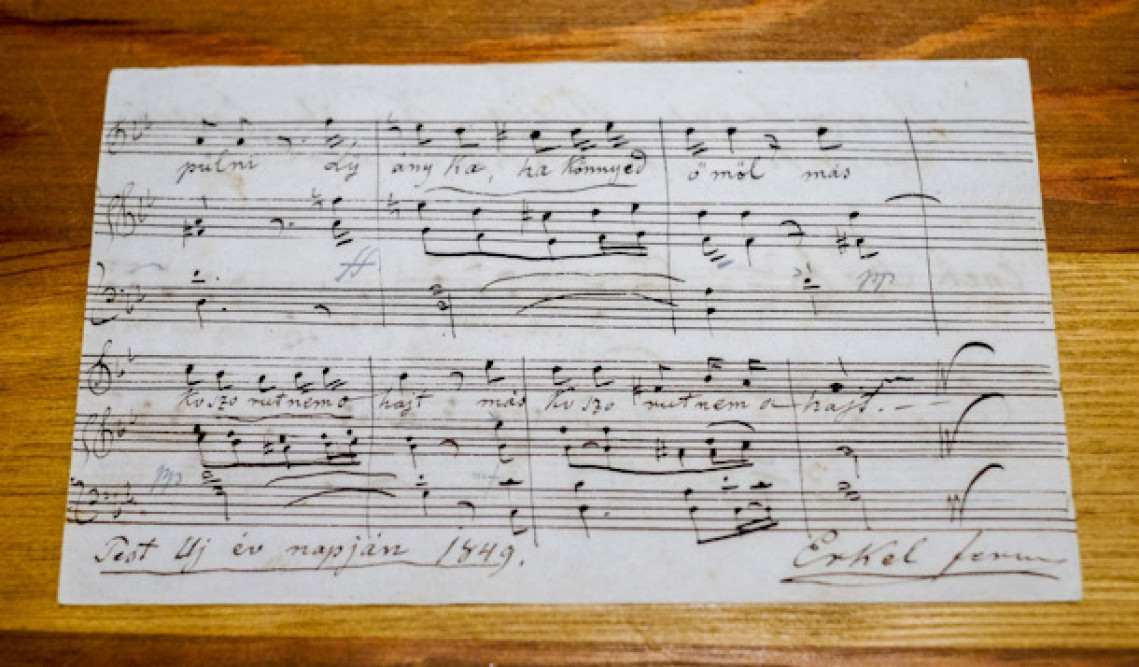 pülni Lÿ ány ka, ha könnyed ö möl más
ff
pp
ko szo rut nem a hajt más ko szo rut nem a hajt.
pp
Pest Uj év napján 1849.
Erkel feren